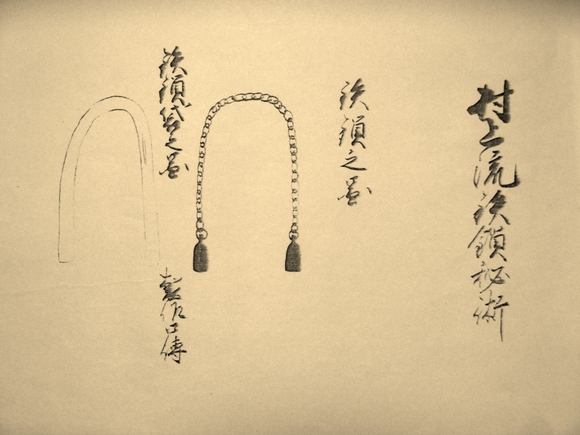 村上流鉄鎖秘術
鉄鎖之圖
鉄鎖袋之圖
製作口傳